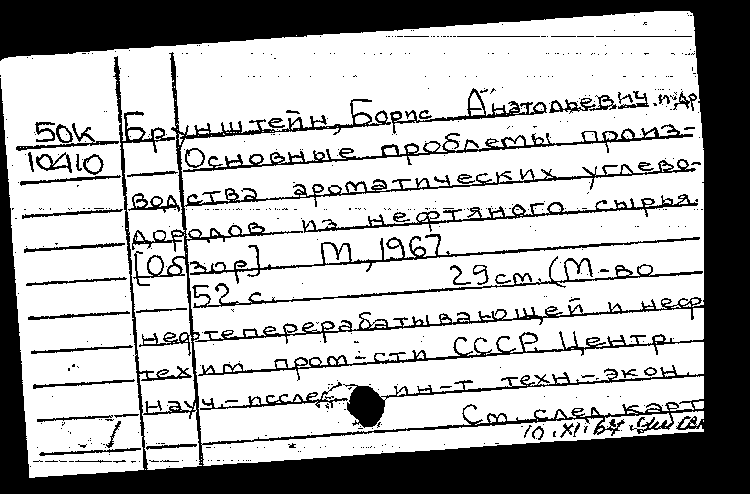 50К Брунштейн, Борис Анатольевич и др.
10410 Основные проблемы произ-
водства ароматических углево-
дородов из нефтяного сырья.
[Обзор]. М., 1967.
52 с. 29 см. (М-во
нефтеперерабатывающей и неф-
техим. пром-сти СССР. Центр.
науч.-исслед. ин-т техн.-экон.
См. след. карт
10.XI.67